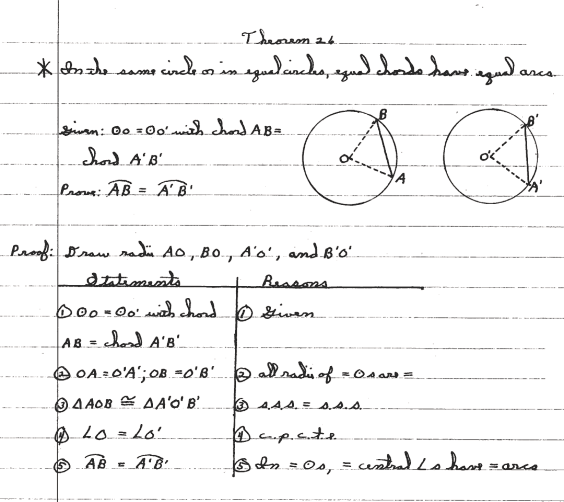 Theorem 26
* In the same circle or in equal circles, equal chords have equal arcs.
Given: ⊙O = ⊙O' with chord AB =
chord A'B'
Prove: A͡B = A͡'B'
B
O
A
B'
O'
A'
Proof: Draw radii AO, BO, A'O', and B'O'
Statements Reasons
① ⊙O = ⊙O' with chord ① Given
AB = chord A'B'
② OA = O'A'; OB = O'B' ② all radii of = ⊙s are =
③ △AOB ≅ △A'O'B' ③ s.s.s. = s.s.s.
④ ∠O = ∠O' ④ c.p.c.t.e.
⑤ A͡B = A͡'B' ⑤ In = ⊙s, = central ∠s have = arcs